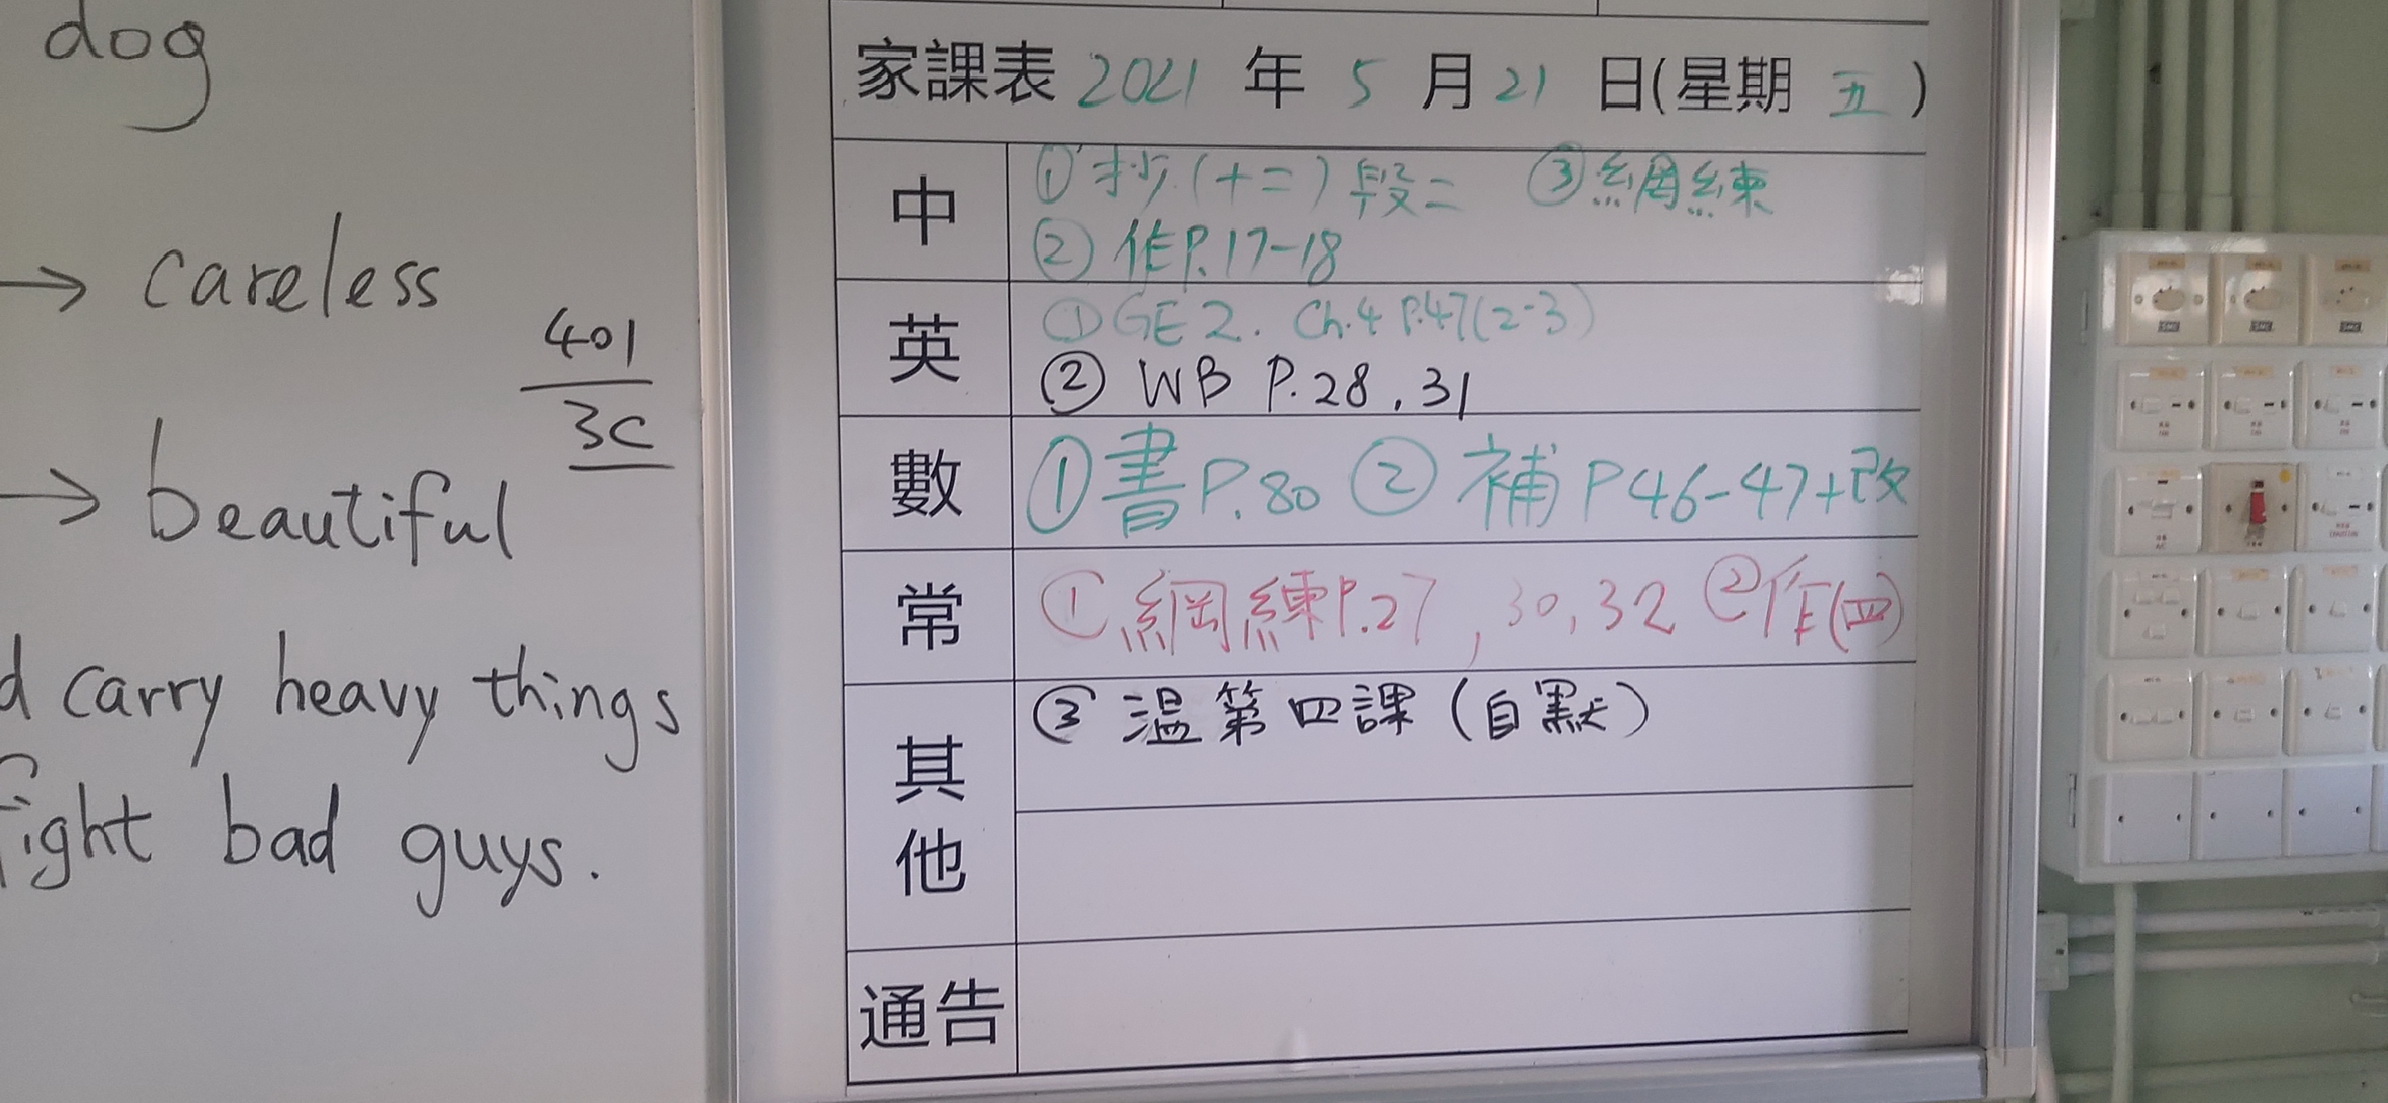 dog
→ careless
401
3C
→ beautiful
d carry heavy things
fight bad guys.
家課表 2021 年 5 月 21 日(星期 五)
中
①抄(十二)段二 ③網練
②作P.17-18
英
①GE2. Ch.4 P.47(2-3)
② WB P.28, 31
數
①書P.80 ②補P46-47+改
常
①網練P.27, 30, 32 ②作(四)
其他
③溫第四課(自默)
通告